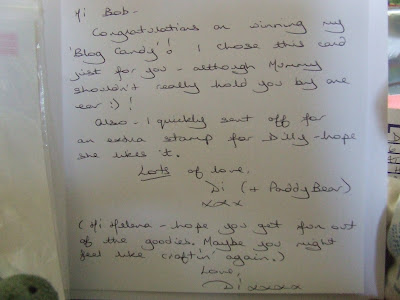 Hi Bob -
Congratulations on winning my
'Blog Candy'! I chose this card
just for you - although Mummy
shouldn't really hold you by one
ear :) !
Also - I quickly sent off for
an extra stamp for Dilly - hope
she likes it.
Lots of love,
Di (+ PaddyBear)
xxx
(Hi Helena - hope you get fun out
of the goodies. Maybe you might
feel like craftin' again.)
Love,
Di xxxxx